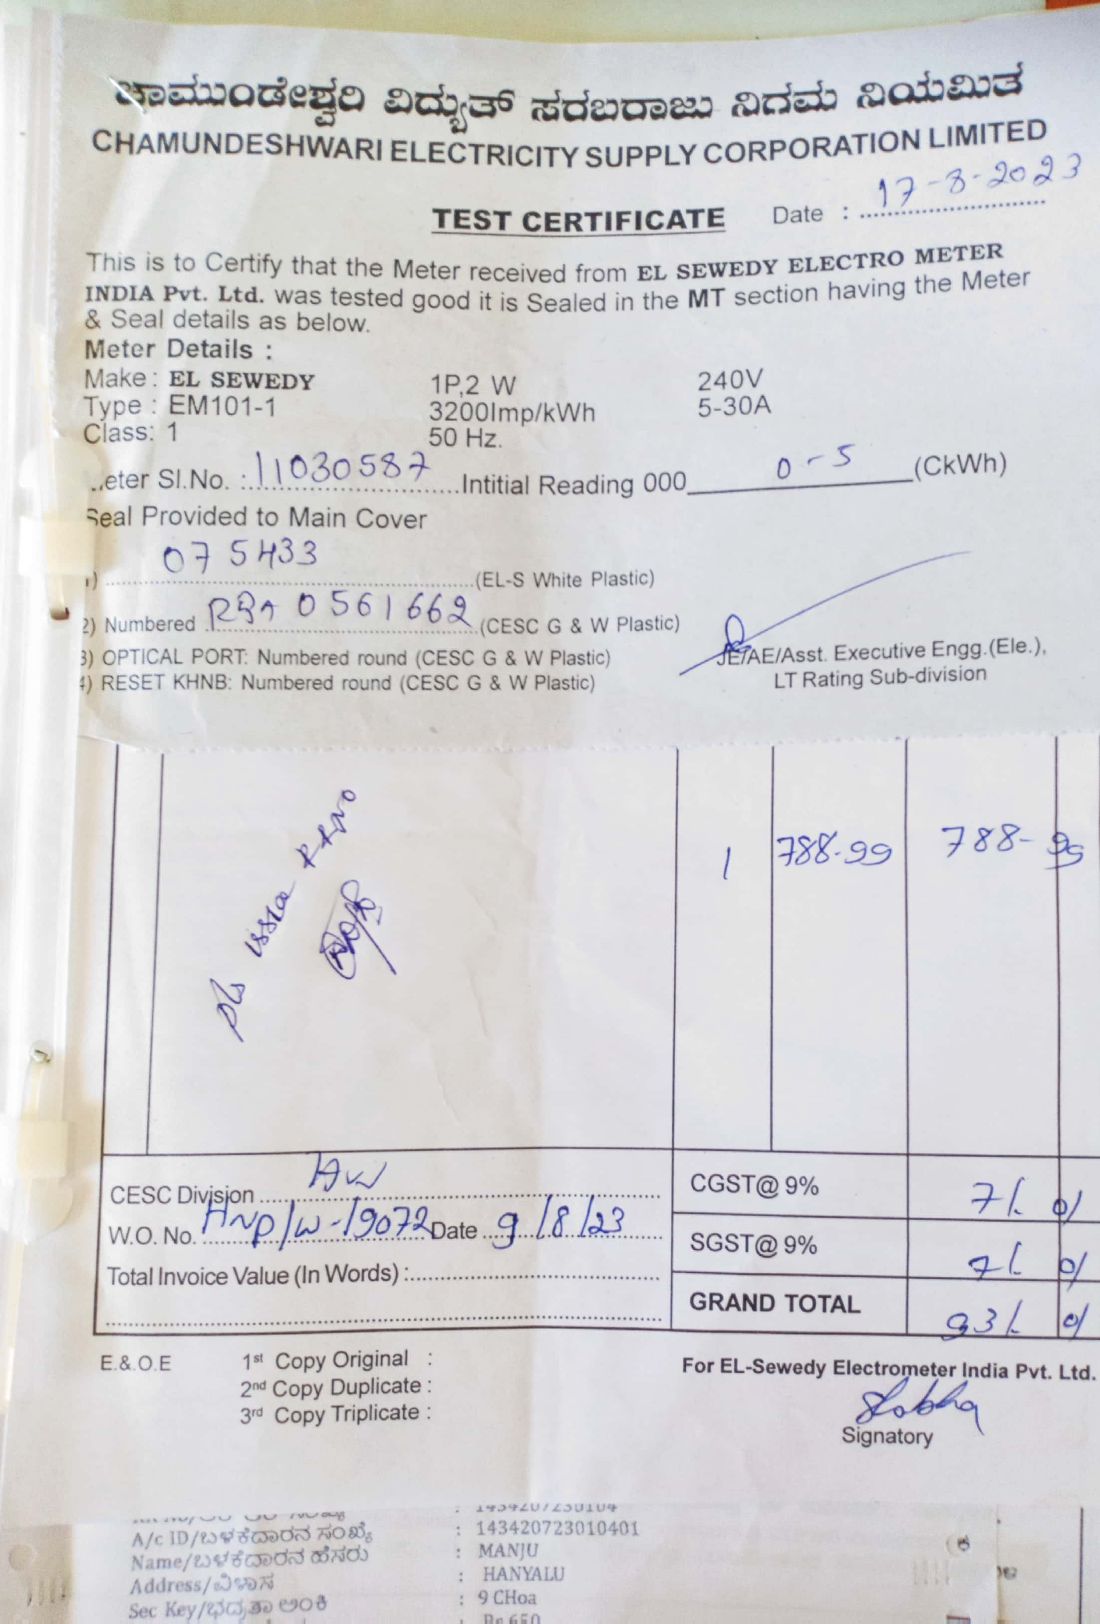 ಚಾಮುಂಡೇಶ್ವರಿ ವಿದ್ಯುತ್ ಸರಬರಾಜು ನಿಗಮ ನಿಯಮಿತ
CHAMUNDESHWARI ELECTRICITY SUPPLY CORPORATION LIMITED
TEST CERTIFICATE Date : 17-8-2023
This is to Certify that the Meter received from EL SEWEDY ELECTRO METER
INDIA Pvt. Ltd. was tested good it is Sealed in the MT section having the Meter
& Seal details as below.
Meter Details :
Make : EL SEWEDY 1P,2 W 240V
Type : EM101-1 3200Imp/kWh 5-30A
Class: 1 50 Hz.
eter Sl.No. : 11030587 Intitial Reading 000 0-5 (CkWh)
Seal Provided to Main Cover
) 075433 (EL-S White Plastic)
2) Numbered 0561662 (CESC G & W Plastic)
3) OPTICAL PORT: Numbered round (CESC G & W Plastic)
4) RESET KHNB: Numbered round (CESC G & W Plastic)
JE/AE/Asst. Executive Engg.(Ele.),
LT Rating Sub-division
1 788-99 788-99
pls issue
CESC Division CGST@ 9% 71
W.O. No. HNP/W-19072 Date 9/8/23 SGST@ 9% 71
Total Invoice Value (In Words) :
GRAND TOTAL 931
E.&.O.E 1st Copy Original :
2nd Copy Duplicate :
3rd Copy Triplicate :
For EL-Sewedy Electrometer India Pvt. Ltd.
Shobha
Signatory
A/c ID/ಬಳಕೆದಾರನ ಸಂಖ್ಯೆ : 143420723010401
Name/ಬಳಕೆದಾರನ ಹೆಸರು : MANJU
Address/ವಿಳಾಸ : HANYALU
Sec Key/ಭದ್ರತಾ ಅಂಕಿ : 9 CHoa
: Rs 650